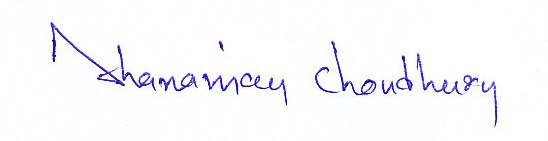 Dhananjay Choudhury